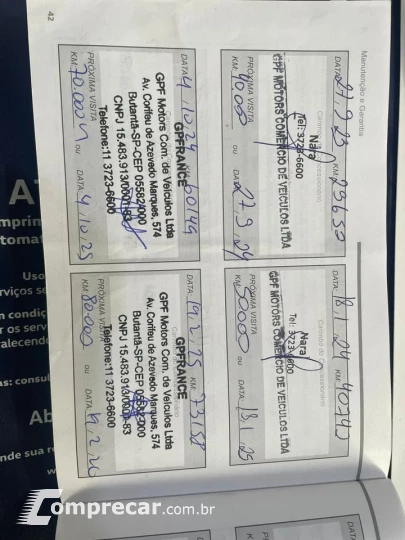 Manutenção e Garantia
DATA 27.9.23 KM: 23650
Nara
Tel: 3723-6600
GPF MOTORS COMERCIO DE VEICULOS LTDA
PRÓXIMA VISITA
KM: 40.000 ou DATA: 27.9.24
DATA: 18.1.24 KM: 40742
Nara
Tel: 3723-6600
Carimbo do Concessionário
GPF MOTORS COMERCIO DE VEICULOS LTDA
PRÓXIMA VISITA
KM: 50000 ou DATA: 18.1.25
DATA: 4.10.24 60149
GPFRANCE
GPF Motors Com. de Veículos Ltda
Av. Corifeu de Azevedo Marques, 574
Butantã-SP-CEP 05582/000
CNPJ 15.483.913/0001-83
Telefone:11 3723-6600
PRÓXIMA VISITA
KM: 70.000 ou DATA: 4.10.25
DATA: 19.2.25 KM: 73158
GPFRANCE
GPF Motors Com. de Veículos Ltda
Av. Corifeu de Azevedo Marques, 574
Butantã-SP-CEP 05582/000
CNPJ 15.483.913/0001-83
Telefone:11 3723-6600
PRÓXIMA VISITA
KM: 80000 ou DATA: 19.2.26
42
DATA:
KM:
Uso
Ab
Comprecar.com.br